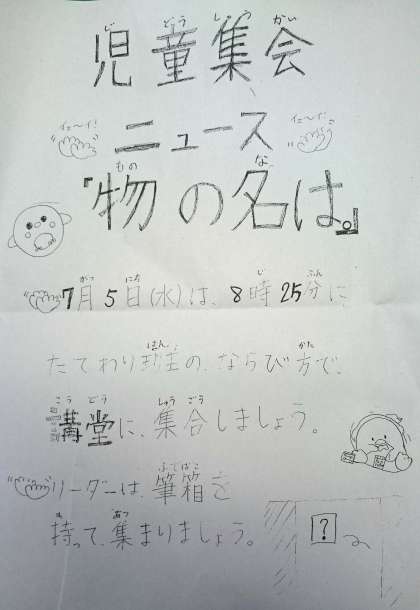 児童集会
ニュース
『物の名は。』
7月5日(水)は、8時25分に、
たてわり班の、ならび方で、
講堂に、集合しましょう。
リーダーは、筆箱を
持って、集まりましょう。
?